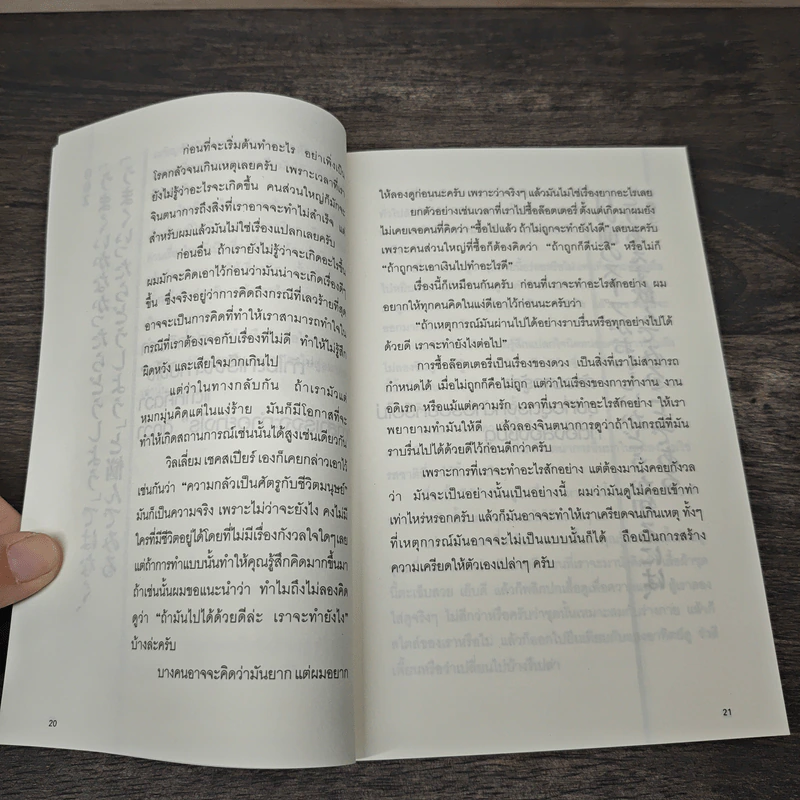 ก่อนที่จะเริ่มต้นทำอะไร อย่าเพิ่งเป็น
โรคกลัวจนเกินเหตุเลยครับ เพราะเวลาที่เรา
ยังไม่รู้ว่าอะไรจะเกิดขึ้น คนส่วนใหญ่ก็มักจะ
จินตนาการถึงสิ่งที่เราอาจจะทำไม่สำเร็จ แต่
สำหรับผมแล้วมันไม่ใช่เรื่องแปลกเลยครับ
ก่อนอื่น ถ้าเรายังไม่รู้ว่าจะเกิดอะไรขึ้น
ผมมักจะคิดเอาไว้ก่อนว่ามันน่าจะเกิดเรื่องดีๆ
ขึ้น ซึ่งจริงอยู่ว่าการคิดถึงกรณีที่เลวร้ายที่สุด
อาจจะเป็นการคิดที่ทำให้เราสามารถทำใจใน
กรณีที่เราต้องเจอกับเรื่องที่ไม่ดี ทำให้ไม่รู้สึก
ผิดหวัง และเสียใจมากเกินไป
แต่ว่าในทางกลับกัน ถ้าเรามัวแต่
หมกมุ่นคิดแต่ในแง่ร้าย มันก็มีโอกาสที่จะ
ทำให้เกิดสถานการณ์เช่นนั้นได้สูงเช่นเดียวกัน
วิลเลี่ยม เชคสเปียร์ เองก็เคยกล่าวเอาไว้
เช่นกันว่า “ความกลัวเป็นศัตรูกับชีวิตมนุษย์”
มันก็เป็นความจริง เพราะไม่ว่าจะยังไง คงไม่มี
ใครที่มีชีวิตอยู่ได้โดยที่ไม่มีเรื่องกังวลใจใดๆเลย
แต่ถ้าการทำแบบนั้นทำให้คุณรู้สึกคิดมากขึ้นมา
ถ้าเช่นนั้นผมขอแนะนำว่า ทำไมถึงไม่ลองคิด
ดูว่า “ถ้ามันไปได้ด้วยดีล่ะ เราจะทำยังไง”
บ้างล่ะครับ
บางคนอาจจะคิดว่ามันยาก แต่ผมอยาก
20
ให้ลองดูก่อนนะครับ เพราะว่าจริงๆ แล้วมันไม่ใช่เรื่องยากอะไรเลย
ยกตัวอย่างเช่นเวลาที่เราไปซื้อล็อตเตอรี่ ตั้งแต่เกิดมาผมยัง
ไม่เคยเจอคนที่คิดว่า “ซื้อไปแล้ว ถ้าไม่ถูกจะทำยังไงดี” เลยนะครับ
เพราะคนส่วนใหญ่ที่ซื้อก็ต้องคิดว่า “ถ้าถูกก็ดีน่ะสิ” หรือไม่ก็
“ถ้าถูกจะเอาเงินไปทำอะไรดี”
เรื่องนี้ก็เหมือนกันครับ ก่อนที่จะทำอะไรสักอย่าง ผม
อยากให้ทุกคนคิดในแง่ดีเอาไว้ก่อนนะครับว่า
“ถ้าเหตุการณ์มันผ่านไปได้อย่างราบรื่นหรือทุกอย่างไปได้
ด้วยดี เราจะทำยังไงต่อไป”
การซื้อล็อตเตอรี่เป็นเรื่องของดวง เป็นสิ่งที่เราไม่สามารถ
กำหนดได้ เมื่อไม่ถูกก็คือไม่ถูก แต่ว่าในเรื่องของการทำงาน งาน
อดิเรก หรือแม้แต่ความรัก เวลาที่เราจะทำอะไรสักอย่าง ให้เรา
พยายามทำมันให้ดี แล้วลองจินตนาการดูว่าถ้าในกรณีที่มัน
ราบรื่นไปได้ด้วยดีไว้ก่อนดีกว่าครับ
เพราะการที่เราจะทำอะไรสักอย่าง แต่ต้องมานั่งคอยกังวล
ว่า มันจะเป็นอย่างนั้นเป็นอย่างนี้ ผมว่ามันดูไม่ค่อยเข้าท่า
เท่าไหร่หรอกครับ แล้วก็มันอาจจะทำให้เราเครียดจนเกินเหตุ ทั้งๆ
ที่เหตุการณ์มันอาจจะไม่เป็นแบบนั้นก็ได้ ถือเป็นการสร้าง
ความเครียดให้ตัวเองเปล่าๆ ครับ
21